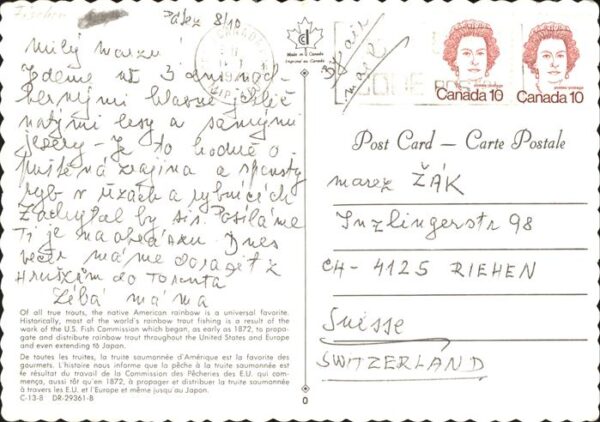 8/10
Milý marzu!
Jedeme už 3 dny nád-
hernými hlavně jehlič
natými lesy a samými
jezery - Je to hodně o-
puštěná krajina a spousty
ryb v řekách a rybnících
Zachytal by sis. Posíláme
Ti je na obrázku Dnes
večer máme dorazit k
Hruškám do Toronta
Líbá máma
Of all true trouts, the native American rainbow is a universal favorite.
Historically, most of the world's rainbow trout fishing is a result of the
work of the U.S. Fish Commission which began, as early as 1872, to propa-
gate and distribute rainbow trout throughout the United States and Europe
and even extending to Japan.
De toutes les truites, la truite saumonnée d'Amérique est la favorite des
gourmets. L'histoire nous informe que la pêche à la truite saumonnée est
le résultat du travail de la Commission des Pêcheries des E.U. qui com-
mença, aussi tôt qu'en 1872, à propager et distribuer la truite saumonnée
à travers les E.U. et l'Europe et même jusqu'au Japon.
C-13-8 DR-29361-B
Made in Canada
Imprimé au Canada
By air
mail
Canada 10
Canada 10
Post Card — Carte Postale
marek ŽÁK
Inzlingerstr 98
CH - 4125 RIEHEN
Suisse
SWITZERLAND
0